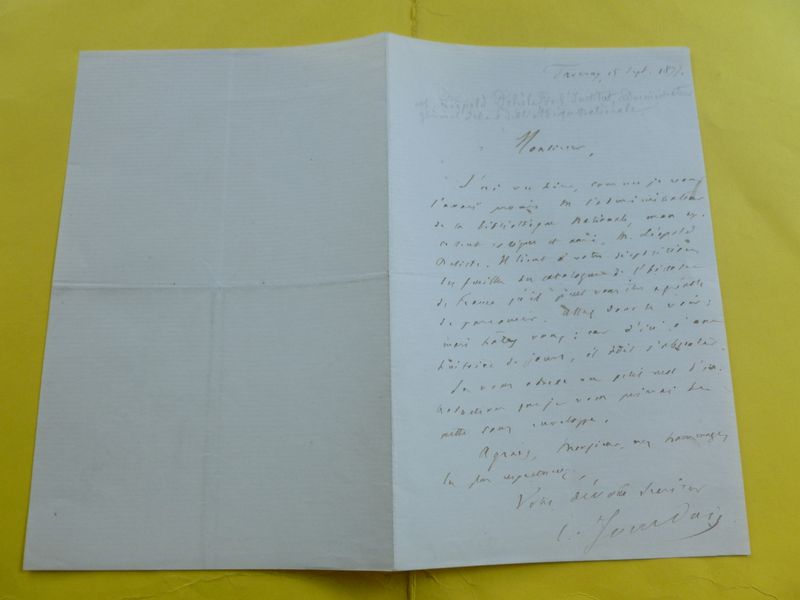 15 Sept. 187
M. Léopold Delisle de l'Institut, administrateur
général de la Bibliothèque nationale.
Monsieur,
J'ai vu hier, comme je vous
l'avais promis M. l'administrateur
de la bibliothèque Nationale, mon ex-
cellent collègue et ami, M. Léopold
Delisle. Il tient à votre disposition
les feuilles du catalogue de l'histoire
de France qu'il peut vous être agréable
de parcourir. Allez donc le voir;
mais hâtez vous: car d'ici à une
huitaine de jours, il doit s'absenter.
Je vous adresse un petit mot d'in-
troduction que je vous prierai de
mettre sous enveloppe.
Agréez, Monsieur, mes hommages
les plus respectueux,
Votre dévoué serviteur
C. Jourdain